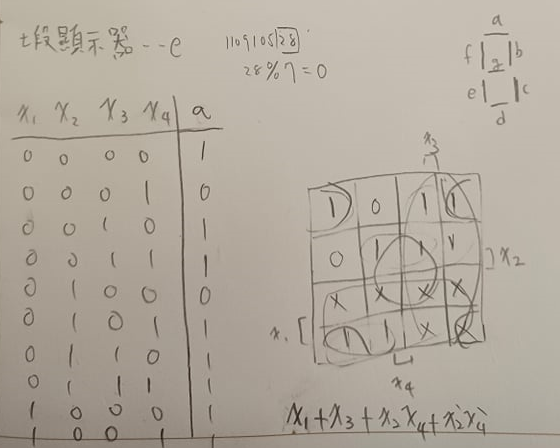 七段顯示器--e
1109105128
28%7=0
a
f b
g
e c
d
x₁ x₂ x₃ x₄ a
0 0 0 0 1
0 0 0 1 0
0 0 1 0 1
0 0 1 1 1
0 1 0 0 0
0 1 0 1 1
0 1 1 0 1
0 1 1 1 1
1 0 0 0 1
1 0 0 1 1
x₃
1 0 1 1
0 1 1 1
x₂
x x x x
1 1 x x
x₁
x₄
x₁+x₃+x₂x₄+x₂'x₄'